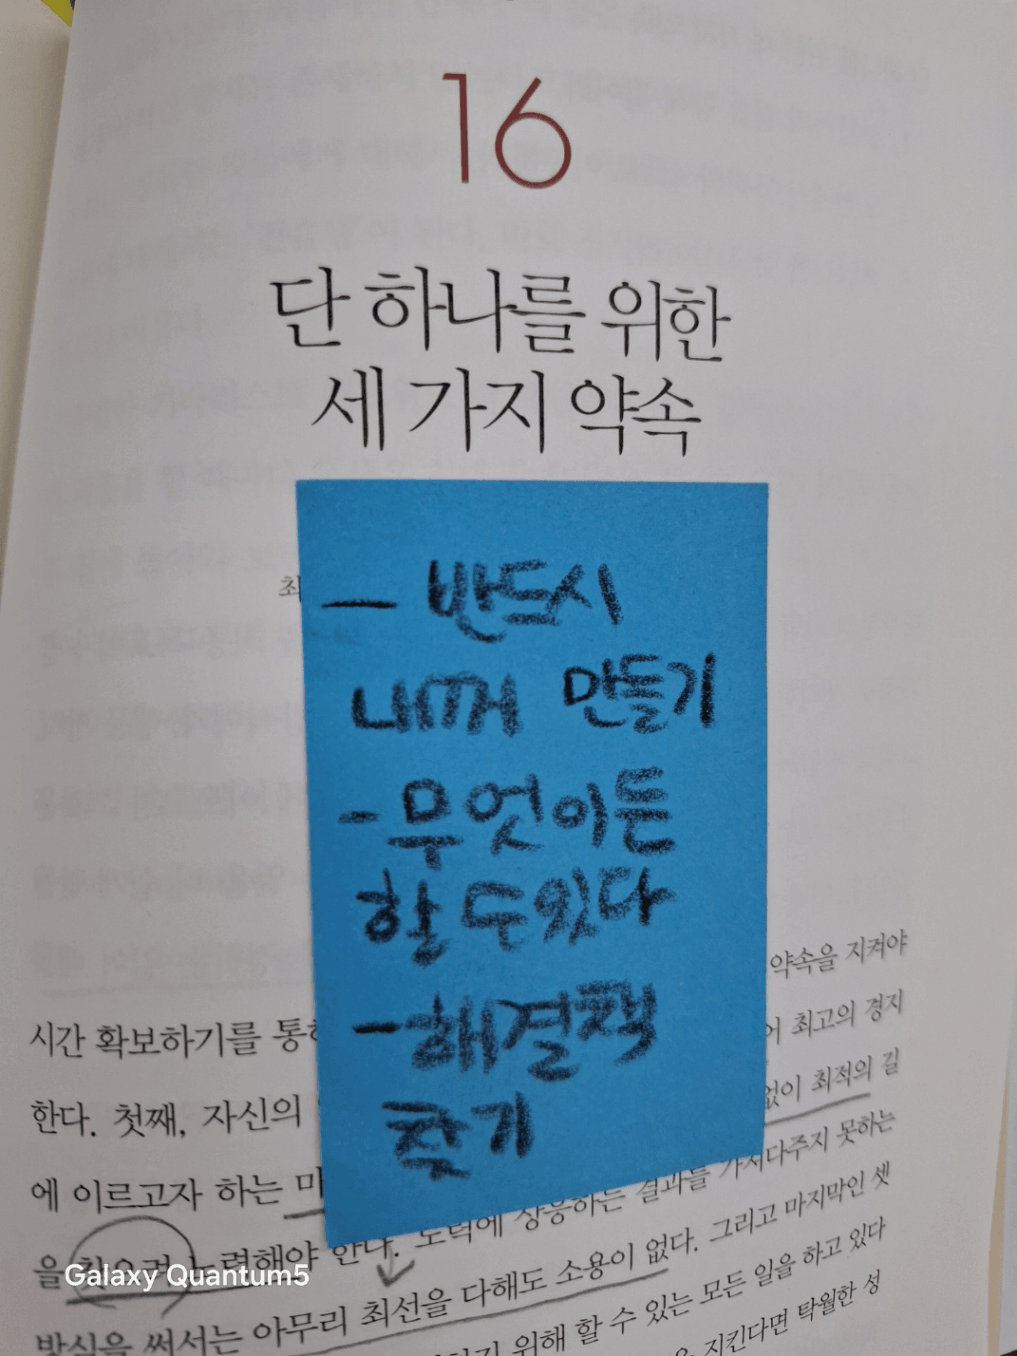 16
단 하나를 위한
세 가지 약속
최
— 반드시
내꺼 만들기
- 무엇이든
할 수 있다
- 해결책
찾기
약속을 지켜야
시간 확보하기를 통해 어 최고의 경지
한다. 첫째, 자신의 없이 최적의 길
에 이르고자 하는 마
을 찾으려 노력해야 한다. 노력에 상응하는 결과를 가져다주지 못하는
방식을 써서는 아무리 최선을 다해도 소용이 없다. 그리고 마지막인 셋
위해 할 수 있는 모든 일을 하고 있다
지킨다면 탁월한 성
Galaxy Quantum5